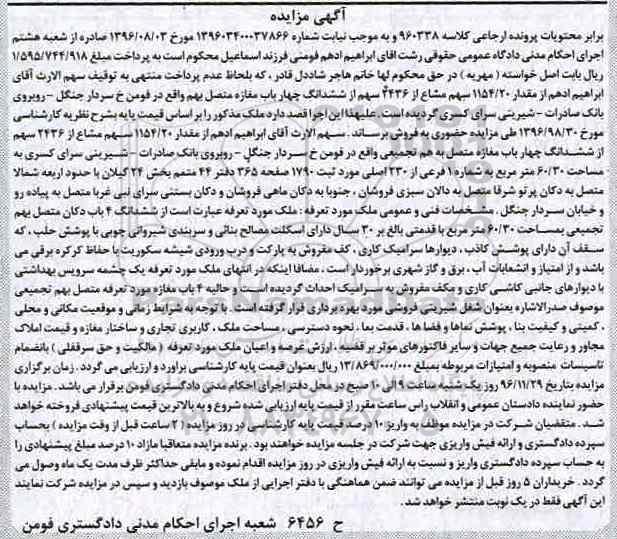 آگهی مزایده
برابر محتویات پرونده ارجاعی کلاسه ۹۶۰۳۳۸ و به موجب نیابت شماره ۱۳۹۶۰۳۴۰۰۰۳۷۸۶۶ مورخ ۱۳۹۶/۰۸/۰۳ صادره از شعبه هشتم
اجرای احکام مدنی دادگاه عمومی حقوقی رشت اقای ابراهیم ادهم فومنی فرزند اسماعیل محکوم است به پرداخت مبلغ ۱/۵۹۵/۷۴۴/۹۱۸
ریال بابت اصل خواسته ( مهریه ) در حق محکوم لها خانم هاجر شاددل قادر ، که بلحاظ عدم پرداخت منتهی به توقیف سهم الارث آقای
ابراهیم ادهم از مقدار ۱۱۵۴/۲۰ سهم مشاع از ۲۴۳۶ سهم از ششدانگ چهار باب مغازه متصل بهم واقع در فومن خ سردار جنگل - روبروی
بانک صادرات - شیرینی سرای کسری گردیده است . علیهذا این اجرا قصد دارد ملک مذکور را بر اساس قیمت پایه بشرح نظریه کارشناسی
مورخ ۱۳۹۶/۹۸/۳۰ طی مزایده حضوری به فروش برساند . سهم الارث آقای ابراهیم ادهم از مقدار ۱۱۵۴/۲۰ سهم مشاع از ۲۴۳۶ سهم
از ششدانگ چهار باب مغازه متصل به هم تجمیعی واقع در فومن خ سردار جنگل - روبروی بانک صادرات - شیرینی سرای کسری به
مساحت ۶۰/۳۰ متر مربع به شماره ۱ فرعی از ۲۳۰ اصلی مورد ثبت ۱۷۹۰ صفحه ۳۶۵ دفتر ۴۴ متمم بخش ۲۴ گیلان با حدود اربعه شمالا
متصل به دکان پرتو شرقا متصل به دالان سبزی فروشان ، جنوبا به دکان ماهی فروشان و دکان بستنی سرای نبی غربا متصل به پیاده رو
و خیابان سردار جنگل . مشخصات فنی و عمومی ملک مورد تعرفه : ملک مورد تعرفه عبارت است از ششدانگ ۴ باب دکان متصل بهم
تجمیعی بمساحت ۶۰/۳۰ متر مربع با قدمتی بالغ بر ۳۰ سال دارای اسکلت مصالح بنائی و سربندی شیروانی چوبی با پوشش حلب ، که
سقف آن دارای پوشش کاذب ، دیوارها سرامیک کاری ، کف مفروش به پارکت و درب ورودی شیشه سکوریت با حفاظ کرکره برقی می
باشد و از امتیاز و انشعابات آب ، برق و گاز شهری برخوردار است . مضافا اینکه در انتهای ملک مورد تعرفه یک چشمه سرویس بهداشتی
با دیوارهای جانبی کاشی کاری و مکف مفروش به سرامیک احداث گردیده است و حالیه ۴ باب مغازه مورد تعرفه متصل بهم تجمیعی
موصوف صدرالاشاره بعنوان شغل شیرینی فروشی مورد بهره برداری قرار گرفته است . با توجه به شرایط زمانی و موقعیت مکانی و محلی
، کمیتی و کیفیت بنا ، پوشش نماها و فضاها ، قدمت بنا ، نحوه دسترسی ، مساحت ملک ، کاربری تجاری و ساختار مغازه و قیمت املاک
مجاور و رعایت جمیع جهات و سایر فاکتورهای موثر بر قضیه ، ارزش عرصه و اعیان ملک مورد تعرفه ( مالکیت و حق سرقفلی ) بانضمام
تاسیسات منصوبه و امتیازات مربوطه بمبلغ ۱۳/۸۶۹/۰۰۰/۰۰۰ ریال بعنوان قیمت پایه کارشناسی براورد و ارزیابی می گردد . زمان برگزاری
مزایده بتاریخ ۹۶/۱۱/۲۹ روز یک شنبه ساعت ۹ الی ۱۰ صبح در محل دفتر اجرای احکام مدنی دادگستری فومن برقرار می باشد . مزایده با
حضور نماینده دادستان عمومی و انقلاب راس ساعت مقرر از قیمت پایه ارزیابی شده شروع و به بالاترین قیمت پیشنهادی فروخته خواهد
شد . متقضیان شرکت در مزایده موظف به واریز ۱۰ درصد قیمت پایه کارشناسی در روز مزایده ( ۲ ساعت قبل از وقت مزایده ) بحساب
سپرده دادگستری و ارائه فیش واریزی جهت شرکت در جلسه مزایده خواهند بود . برنده مزایده متعاقبا مازاد ۱۰ درصد مبلغ پیشنهادی را
به حساب سپرده دادگستری واریز و نسبت به ارائه فیش واریزی در روز مزایده اقدام نموده و مابقی حداکثر ظرف مدت یک ماه وصول می
گردد . خریداران ۵ روز قبل از مزایده می توانند ضمن هماهنگی با دفتر اجرایی از ملک موصوف بازدید و سپس در مزایده شرکت نمایند
این آگهی فقط در یک نوبت منتشر خواهد شد .
ح ۶۴۵۶ شعبه اجرای احکام مدنی دادگستری فومن